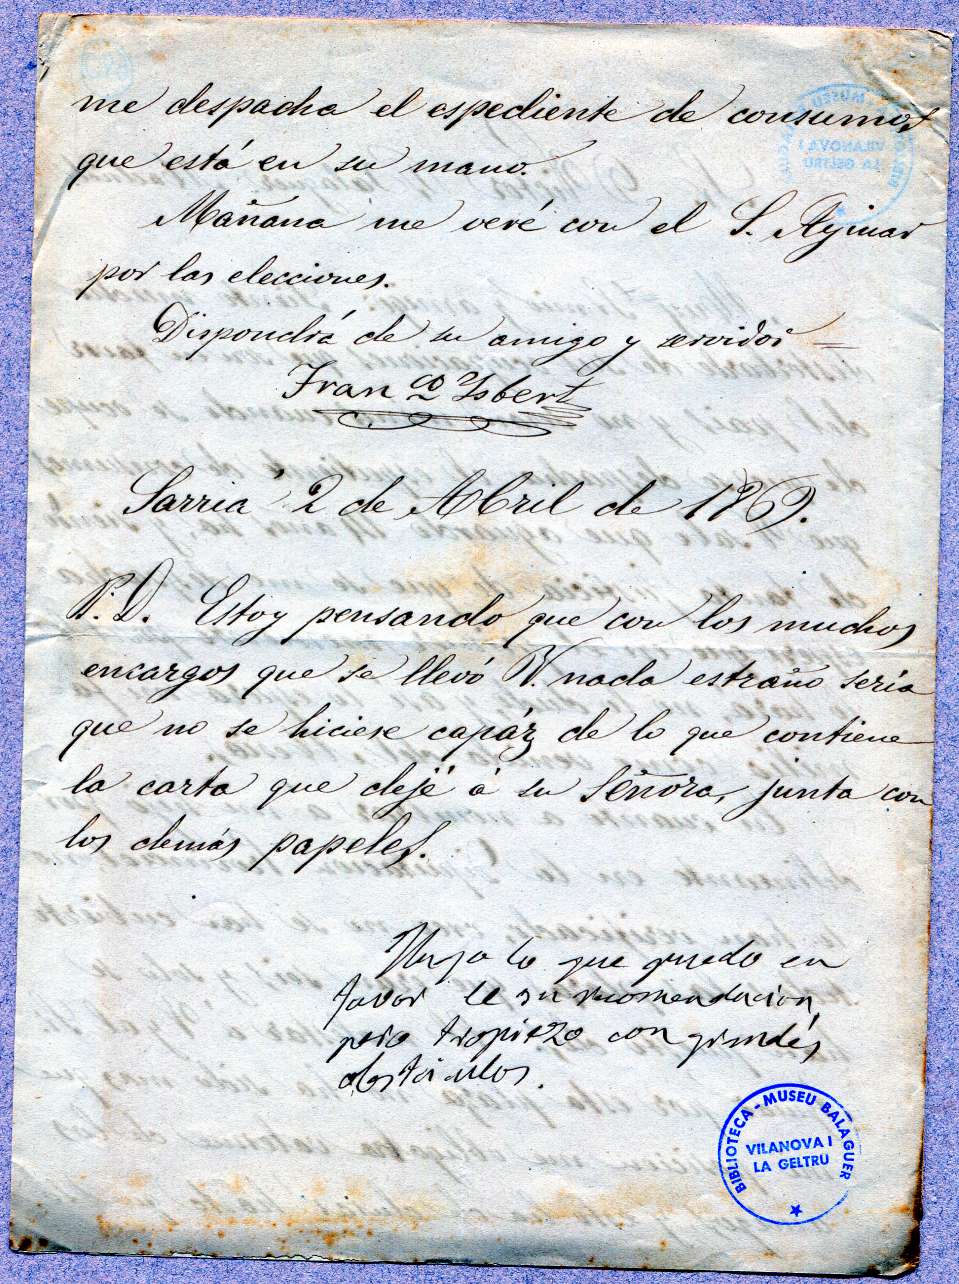 me despacha el espediente de consumos
que está en su mano.
Mañana me veré con el S. Aymar
por las elecciones.
Dispondrá de su amigo y servidor
Fran co Ysbert
Sarriá 2 de Abril de 1869.
P. D. Estoy pensando que con los muchos
encargos que se llevó V. nada estraño sería
que no se hiciese capáz de lo que contiene
la carta que dejé á su Señora, junta con
los demás papeles.
Hago lo que puedo en
favor de su recomendacion,
pero tropiezo con grandes
obstaculos.
BIBLIOTECA - MUSEU BALAGUER
VILANOVA I
LA GELTRU